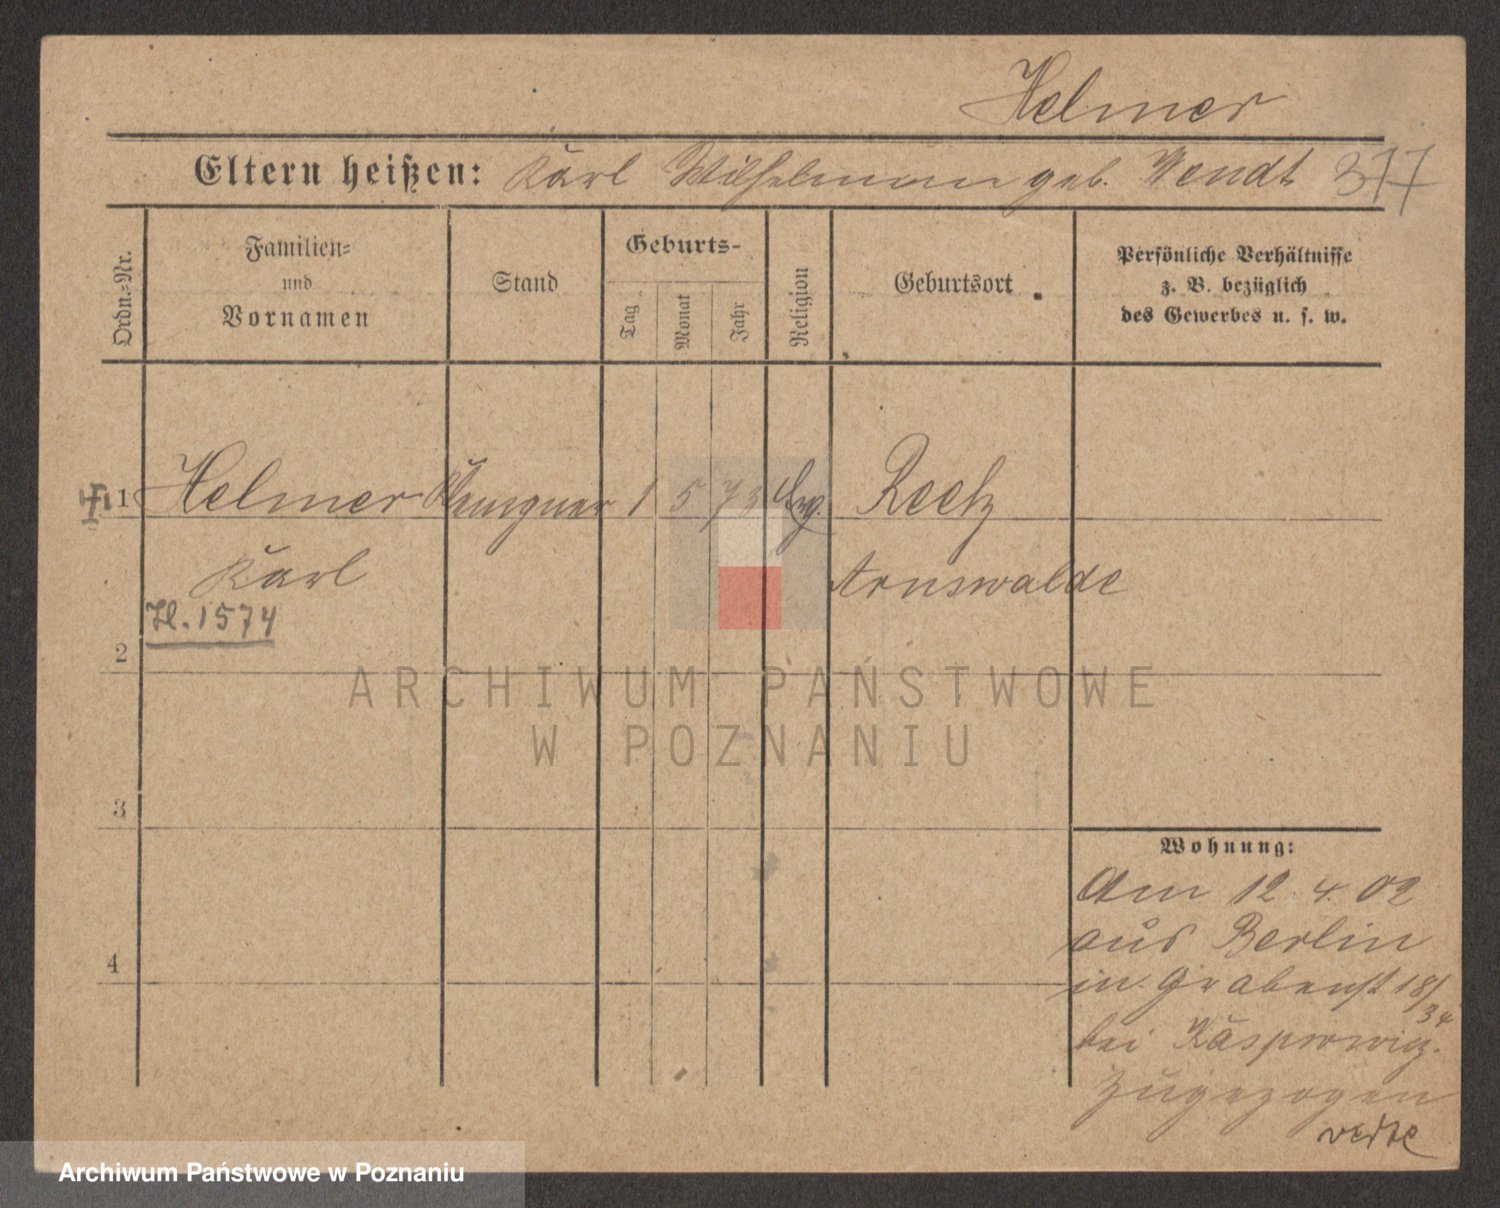 Helmer
Eltern heißen: Karl Wilhelmine geb. Wendt 377
Ordn.-Nr.
Familien-
und
Vornamen
Stand
Geburts-
Tag
Monat
Jahr
Religion
Geburtsort
Persönliche Verhältnisse
z. B. bezüglich
des Gewerbes u. s. w.
1 Helmer 1 5 73 Evg. Reetz
Karl Arnswalde
H. 1574
2
ARCHIWUM PAŃSTWOWE
W POZNANIU
3
4
Wohnung:
Am 12. 4. 02
aus Berlin
in Grabenst 18/34
bei
zugezogen
verte
Archiwum Państwowe w Poznaniu